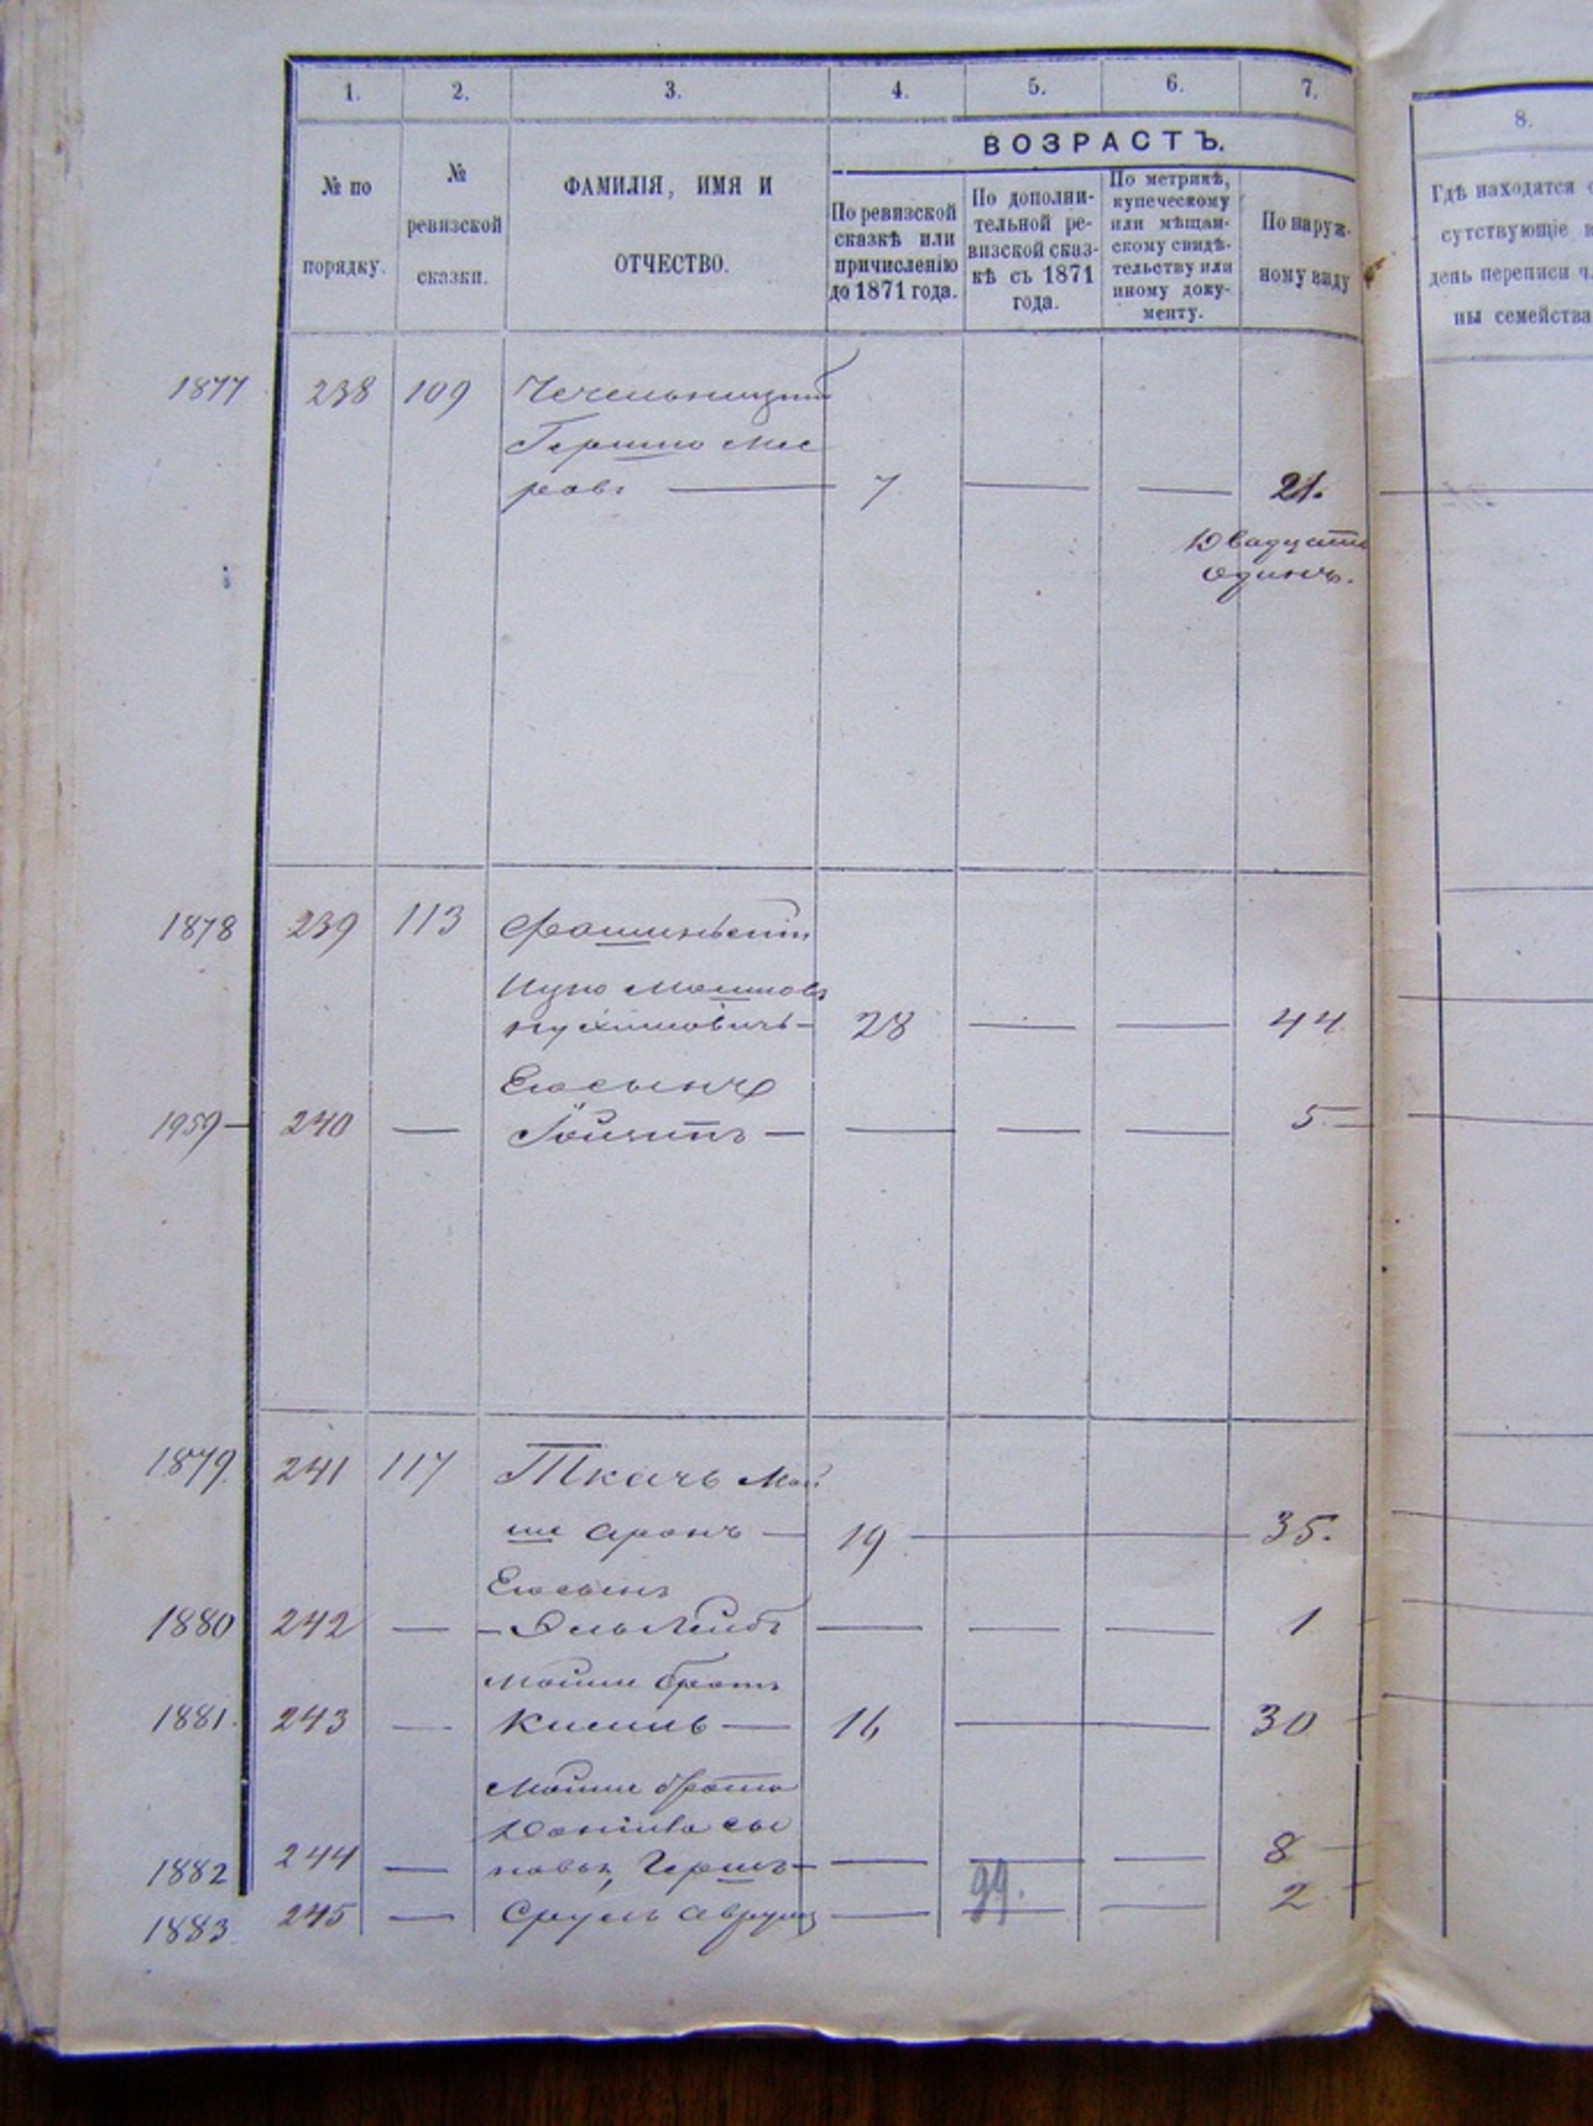 1. 2. 3. 4. 5. 6. 7.
8.
ВОЗРАСТЪ.
№ по порядку.
№ ревизской сказки.
ФАМИЛІЯ, ИМЯ И
ОТЧЕСТВО.
По ревизской
сказкѣ или
причисленію
до 1871 года.
По дополни-
тельной ре-
визской сказ-
кѣ съ 1871
года.
По метрикѣ,
купеческому
или мѣщан-
скому свидѣ-
тельству или
иному доку-
менту.
По наруж-
ному виду
Гдѣ находятся
сутствующіе
день переписи
ны семейства
1877 238 109 Чечельницкій
Гершко Мее
ровъ — 7 — — 21.
Двадцать
одинъ.
1878 239 113
Мошков
28 — — 44
Его сынъ
1959 — 240 — — — — 5
1879 241 117 Ткачъ Мой
ше Аронъ — 19 — 35.
Его сынъ
1880 242 — Эль Лейбъ — — — 1
Мойше братъ
1881 243 — Кисиль — 16 — 30
Мойше брата
сы
1882 244 — новья, Гершъ — — — — 8
1883 245 — Сруль Аврумъ — — — 2
99.